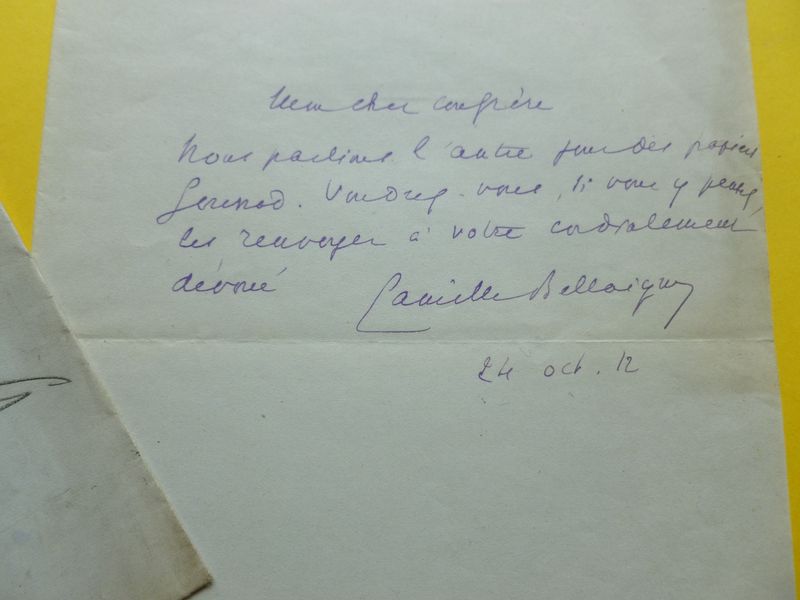 Mon cher confrère
Nous parlions l'autre jour des papiers
Gounod. Voudrez-vous, si vous y pensez,
les renvoyer à votre cordialement
dévoué Camille Bellaigue
24 oct. 12